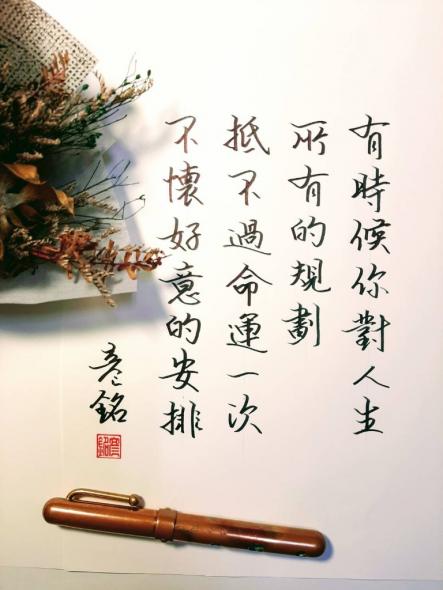 有時候你對人生
所有的規劃
抵不過命運一次
不懷好意的安排
彥銘